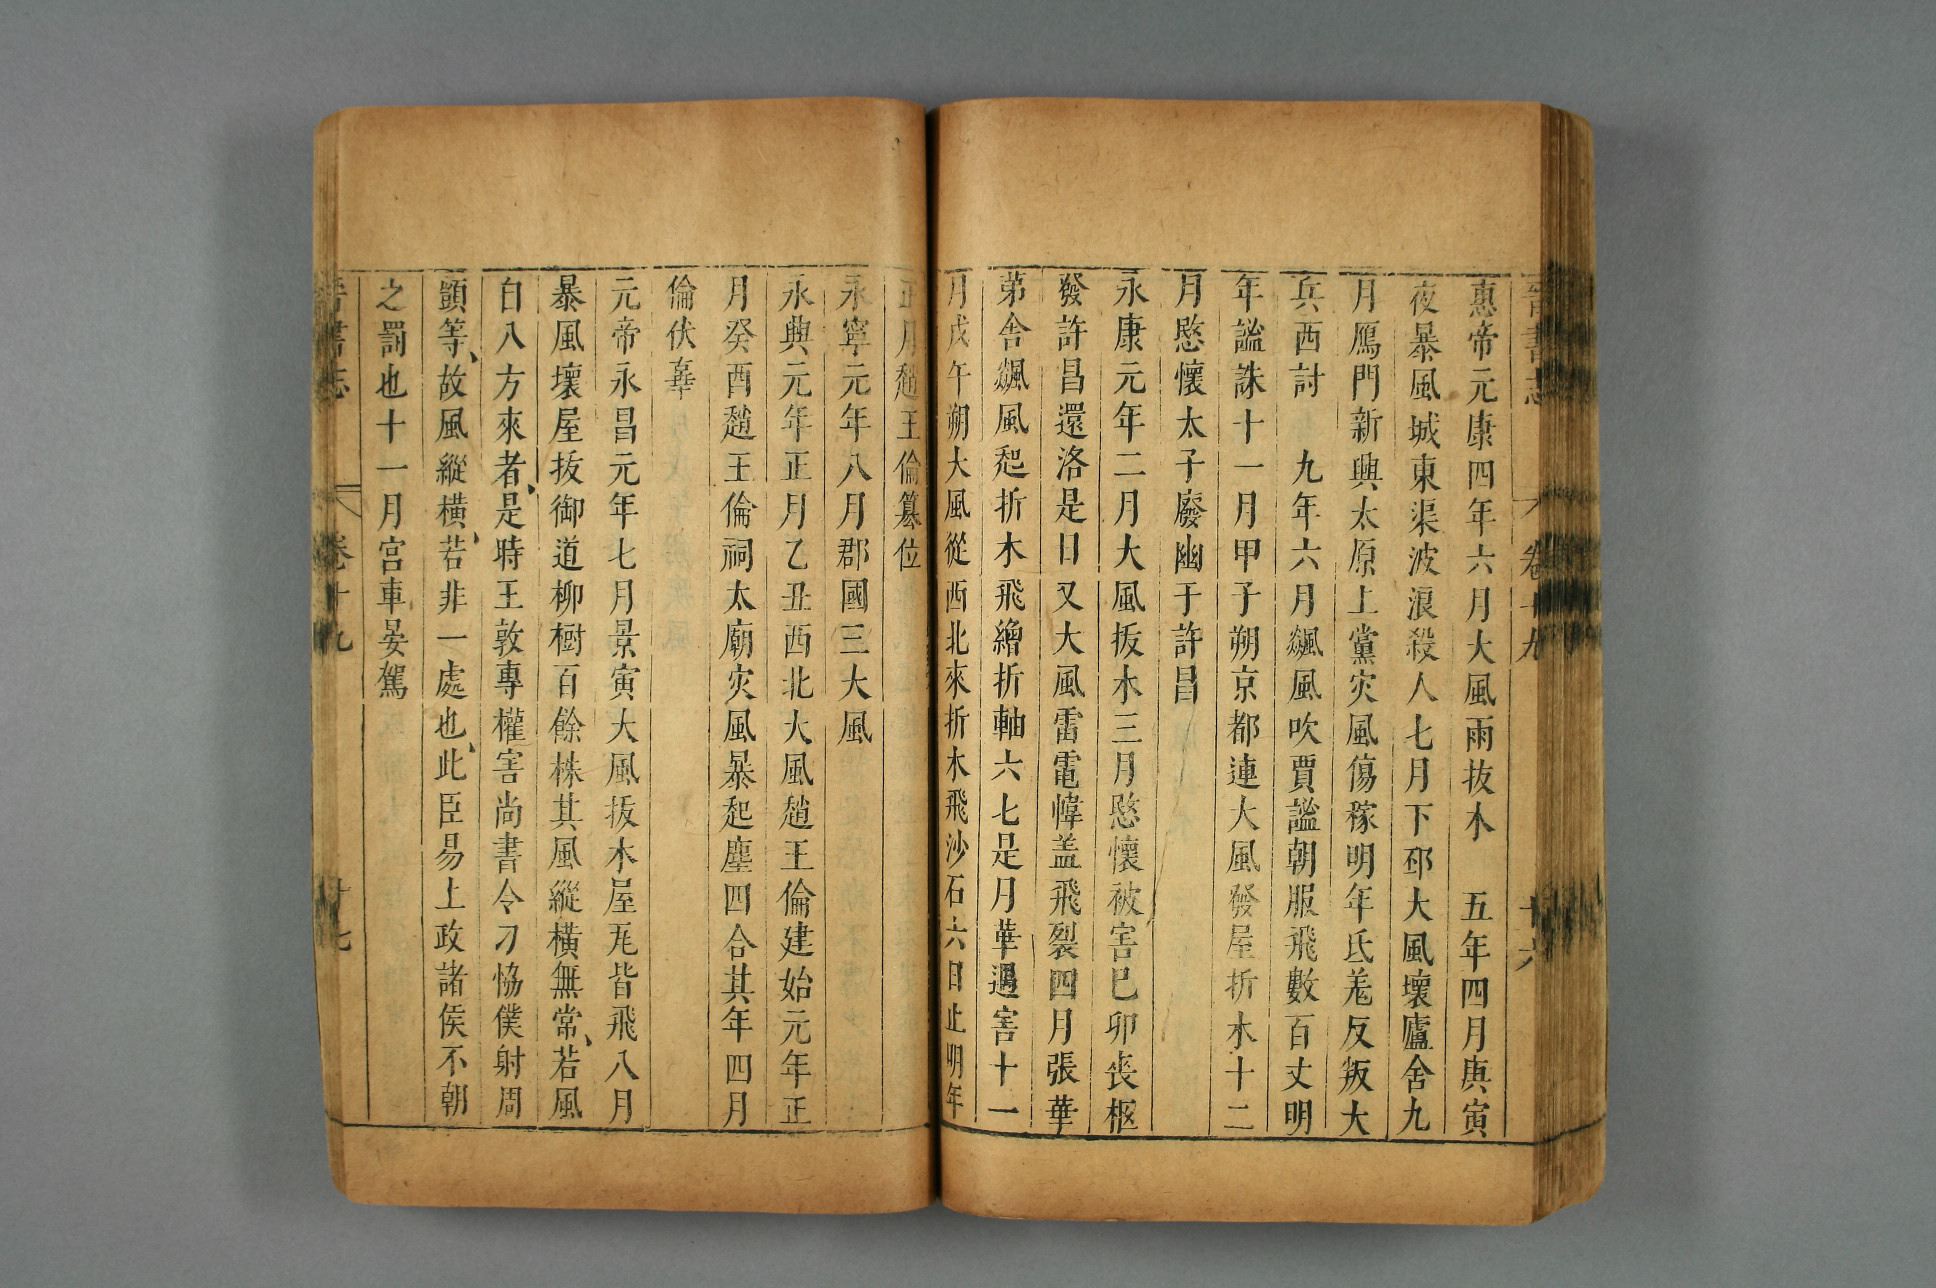 晉書志 卷十九 十六
惠帝元康四年六月大風雨拔木 五年四月庚寅
夜暴風城東渠波浪殺人七月下邳大風壞廬舍九
月鴈門新興太原上黨灾風傷稼明年氐羗反叛大
兵西討 九年六月飊風吹賈謐朝服飛數百丈明
年謐誅十一月甲子朔京都連大風發屋折木十二
月愍懷太子廢幽于許昌
永康元年二月大風拔木三月愍懷被害巳卯喪柩
發許昌還洛是日又大風雷電幃盖飛裂四月張華
第舍飊風起折木飛繒折軸六七是月華遇害十一
月戊午朔大風從西北來折木飛沙石六日止明年
正月趙王倫篡位
永寧元年八月郡國三大風
永興元年正月乙丑西北大風趙王倫建始元年正
月癸酉趙王倫祠太廟灾風暴起塵四合其年四月
倫伏辜
元帝永昌元年七月景寅大風拔木屋瓦皆飛八月
暴風壞屋拔御道柳樹百餘株其風縱橫無常、若風
自八方來者、是時王敦專權害尚書令刁恊僕射周
顗等、故風縱橫、若非一處也、此臣易上政諸侯不朝
之罰也十一月宮車晏駕
晉書志 卷十九 十七